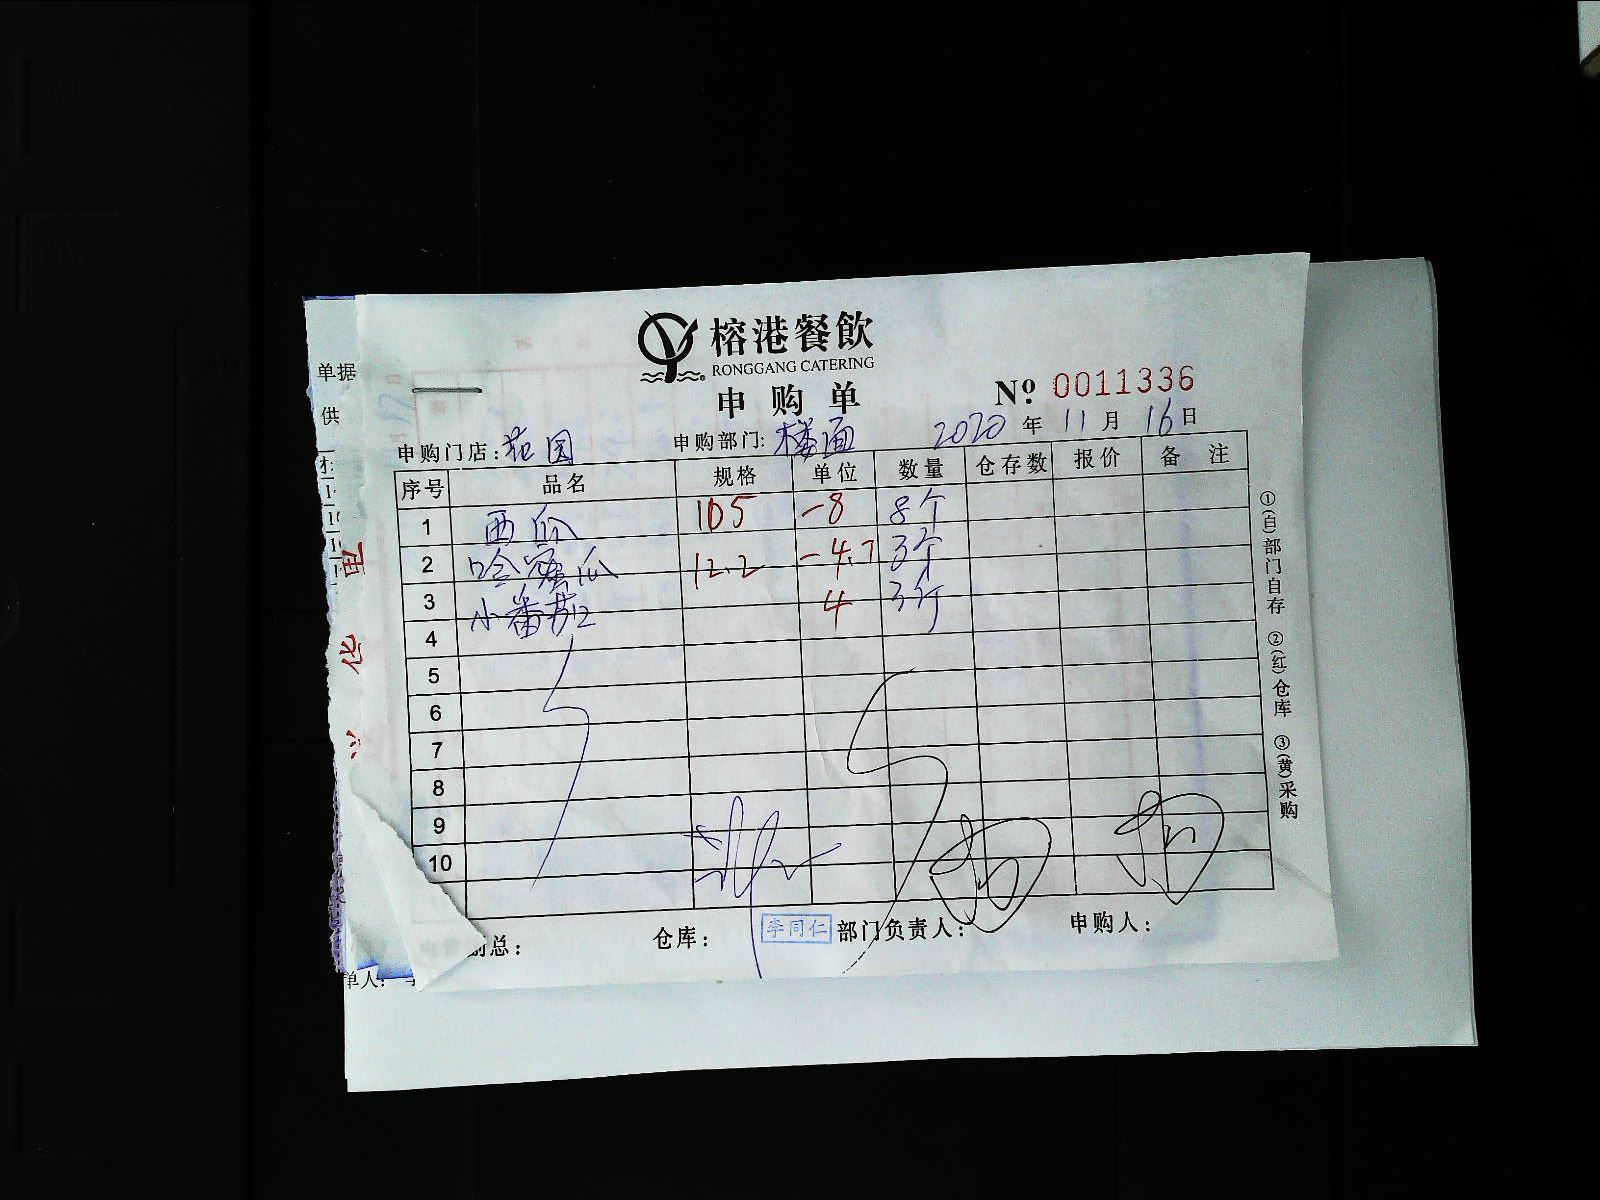 榕港餐飲
RONGGANG CATERING
申购单
Nº 0011336
申购门店:花园 申购部门:楼面 2020年11月16日
序号 品名 规格 单位 数量 仓存数 报价 备注
1 西瓜 105 -8 8个
2 哈密瓜 12.2 -4.7 3个
3 小番茄 4 3斤
4
5
6
7
8
9
10
副总: 仓库: 李同仁 部门负责人: 申购人:
①(白)部门自存 ②(红)仓库 ③(黄)采购
单据
供
单人: